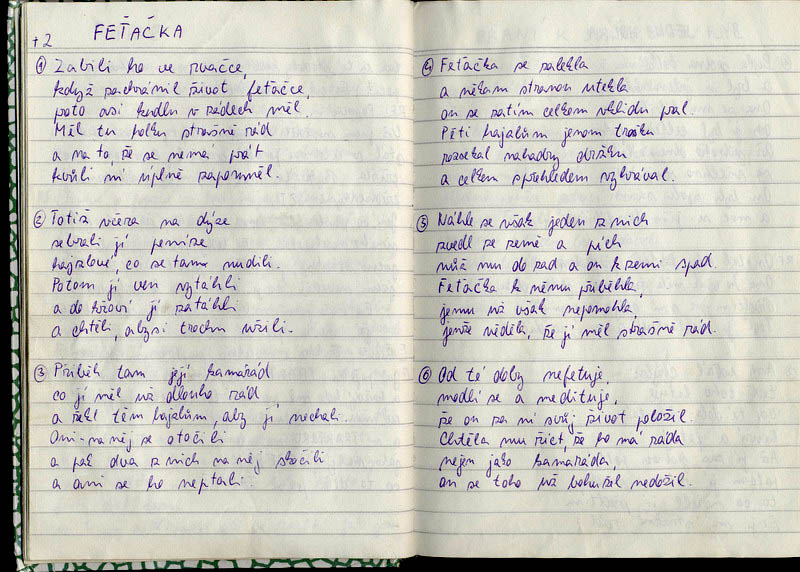 +2 FEŤAČKA
① Zabili ho ve rvačce,
když zachránil život feťačce,
poto asi kudlu v zádech měl.
Měl tu holku strašně rád
a na to, že se nemá prát
kvůli ní úplně zapomněl.
② Totiž včera na dýze
sebrali jí peníze
hajzlové, co se tam nudili.
Potom ji ven vytáhli
a do křoví ji zatáhli
a chtěli, aby si trochu užili.
③ Přiběh tam její kamarád
co jí měl už dlouho rád
a řekl těm hajzlům, aby jí nechali.
Oni na něj se otočili
a pak dva z nich na něj skočili
a ani se ho neptali.
④ Feťačka se zalekla
a někam stranou utekla
on se zatím celkem v klidu pral.
Pěti hajzlům jenom trošku
rozsekal nahadry držku
a celkem s přehledem vyhrával.
⑤ Náhle se však jeden z nich
zvedl ze země a pích
nůž mu do zad a on k zemi spad.
Feťačka k němu přiběhla,
jemu už však nepomohla,
jenže věděla, že jí měl strašně rád.
⑥ Od té doby nefetuje,
modlí se a medituje,
že on za ní svůj život položil.
Chtěla mu říct, že ho má ráda
nejen jako kamaráda,
on se toho už bohužel nedožil.